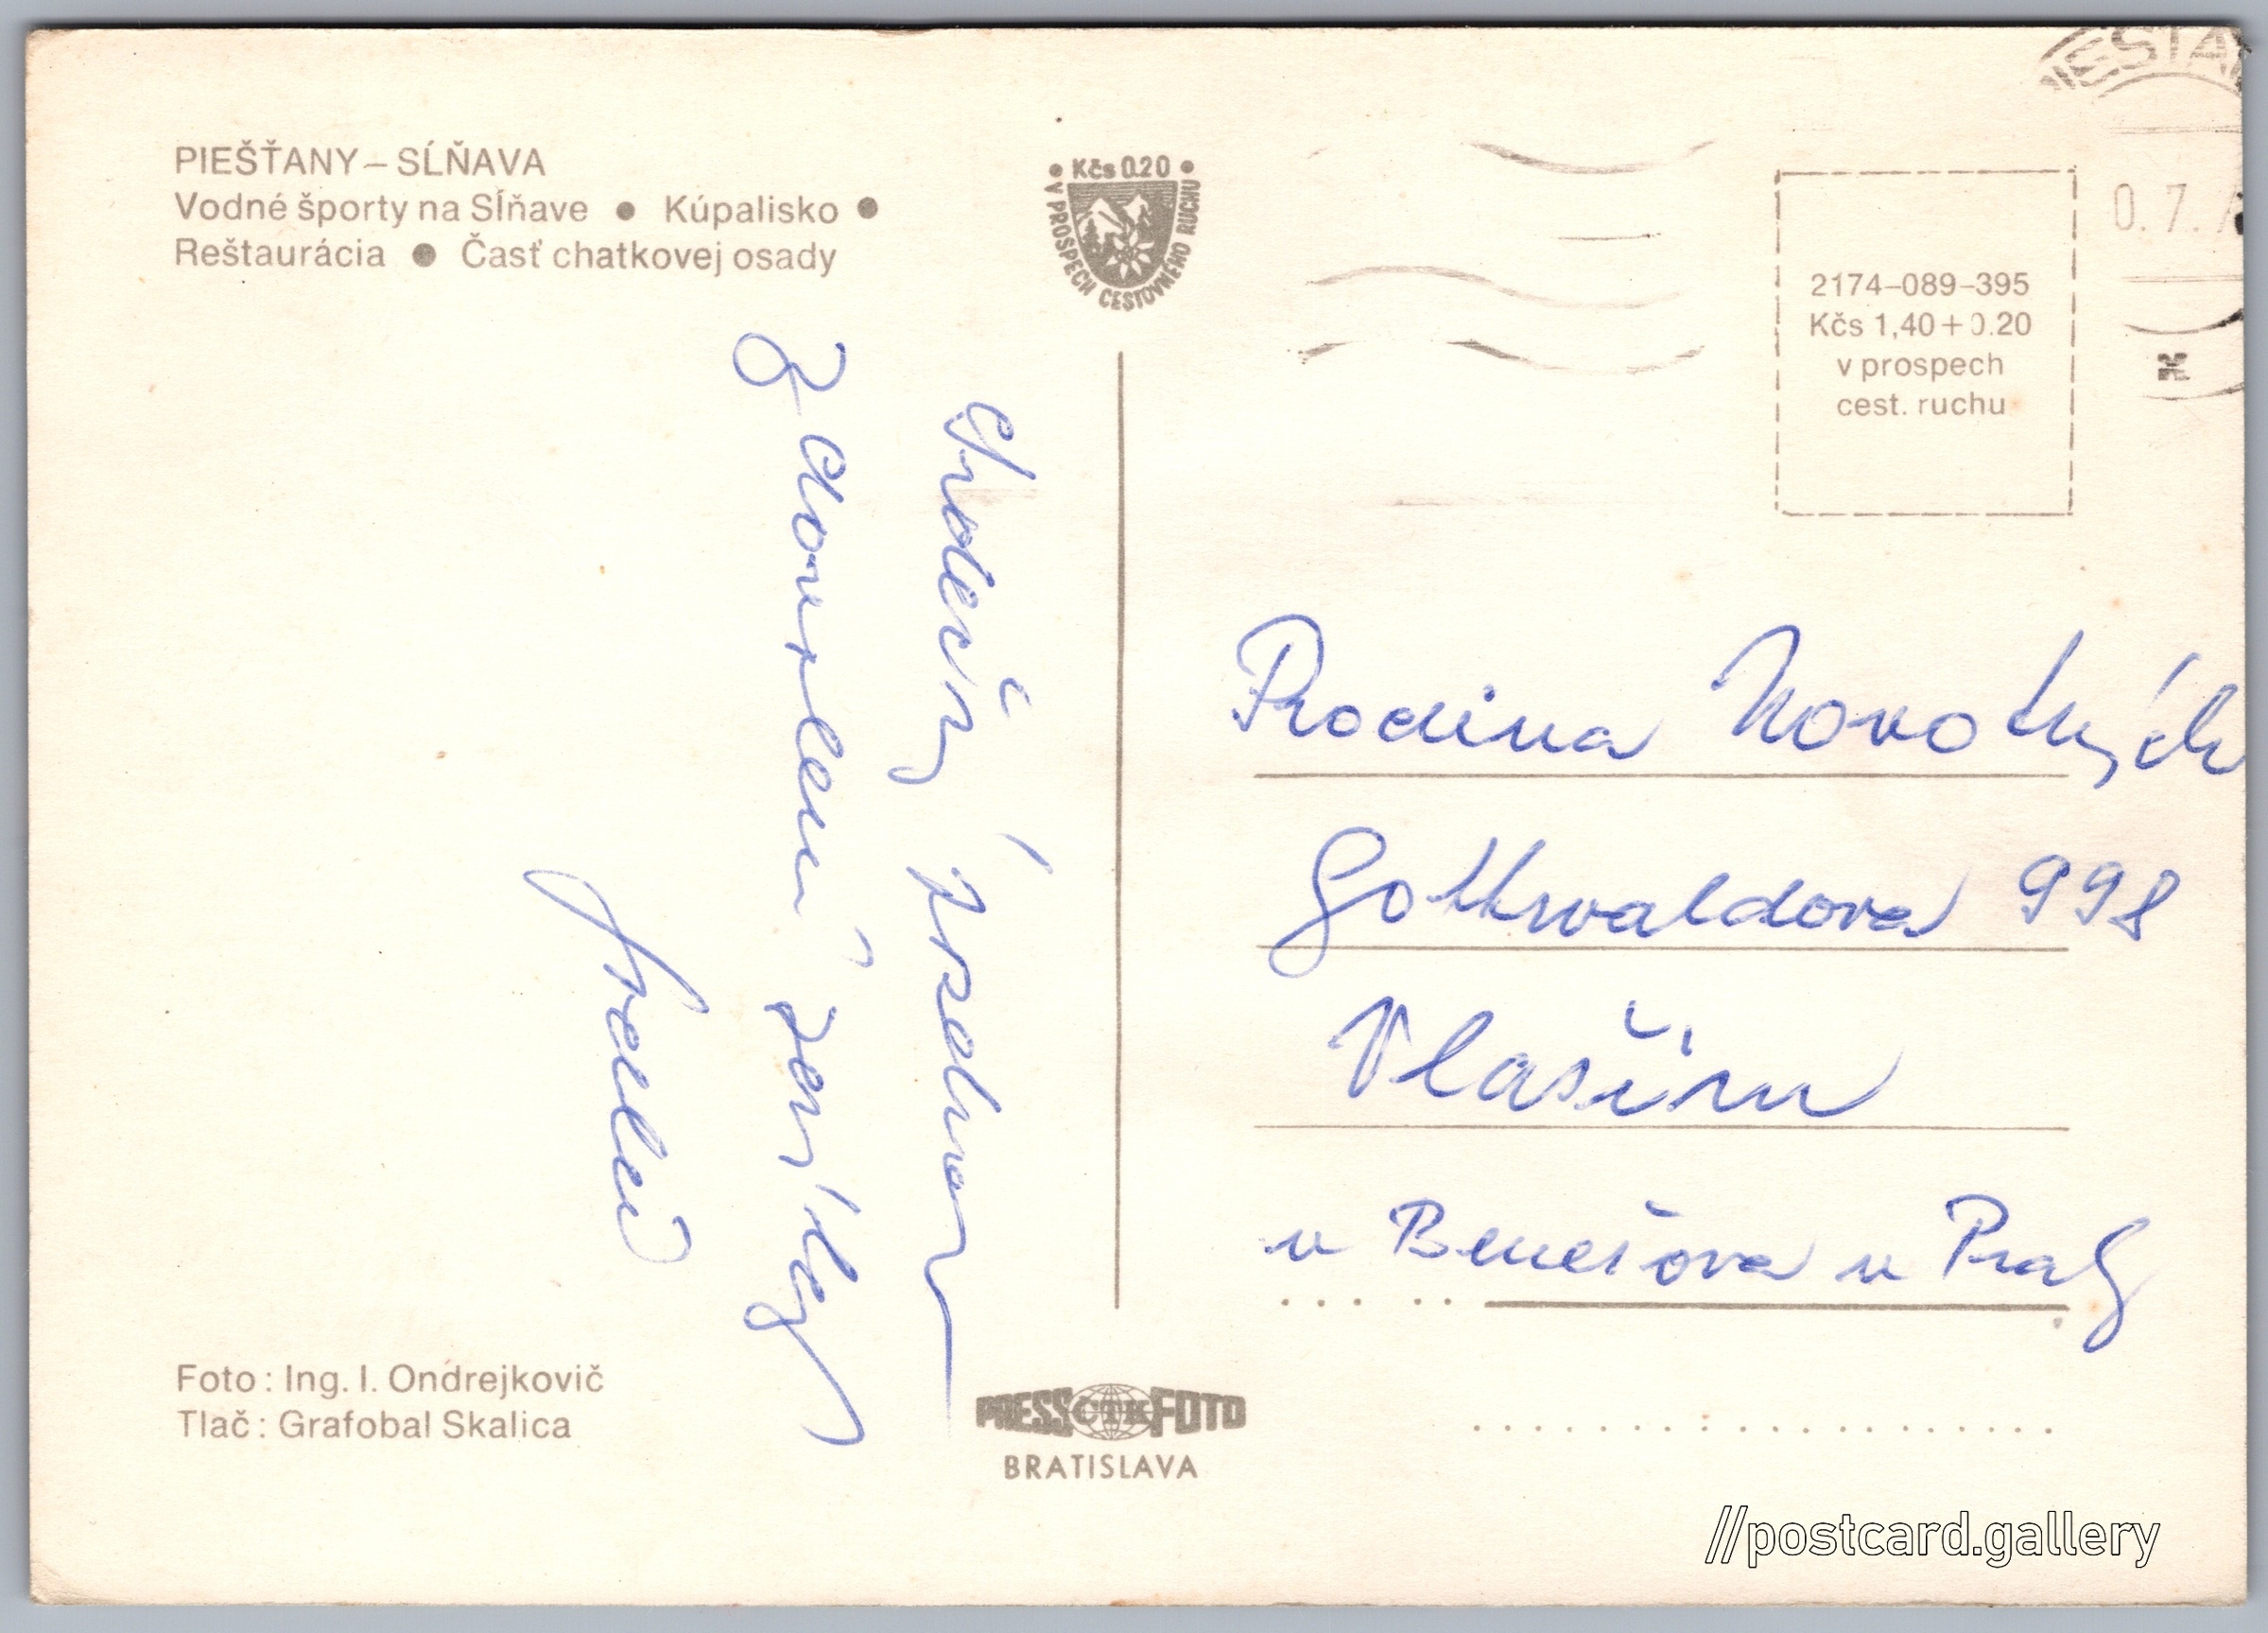 PIEŠŤANY – SĹŇAVA
Vodné športy na Sĺňave ● Kúpalisko ●
Reštaurácia ● Časť chatkovej osady
• Kčs 0.20 •
V PROSPECH CESTOVNÉHO RUCHU
0. 7.
2174–089–395
Kčs 1,40 + 0.20
v prospech
cest. ruchu
Srdečný pozdrav
z dovolené
Rodina Novotných
Gottwaldova 998
Vlašim
u Benešova u Prahy
Foto : Ing. I. Ondrejkovič
Tlač : Grafobal Skalica
PRESS ČTK FOTO
BRATISLAVA
//postcard.gallery